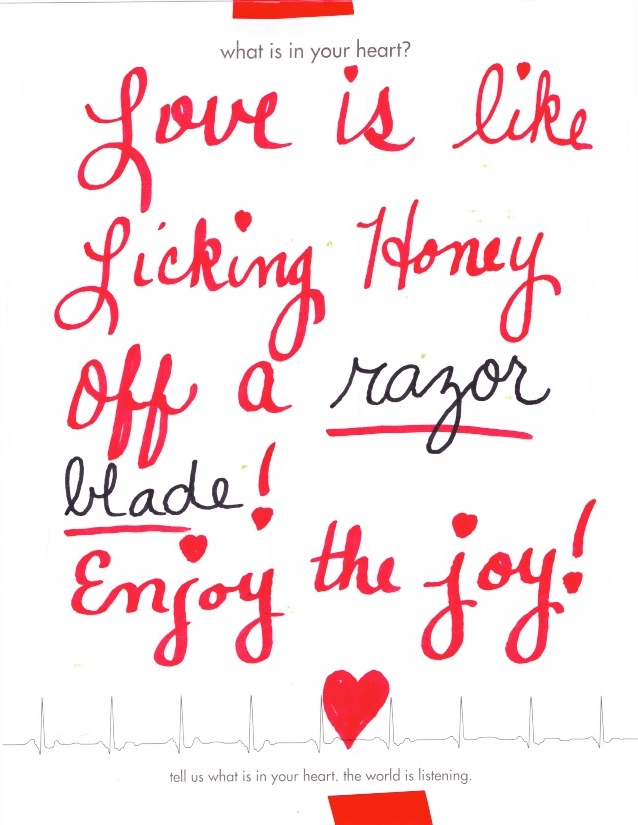 what is in your heart?
Love is like
Licking Honey
Off a razor
blade!
Enjoy the joy!
tell us what is in your heart. the world is listening.